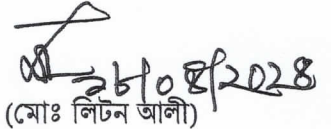 ২৮/০৪/২০২৪
(মোঃ লিটন আলী)